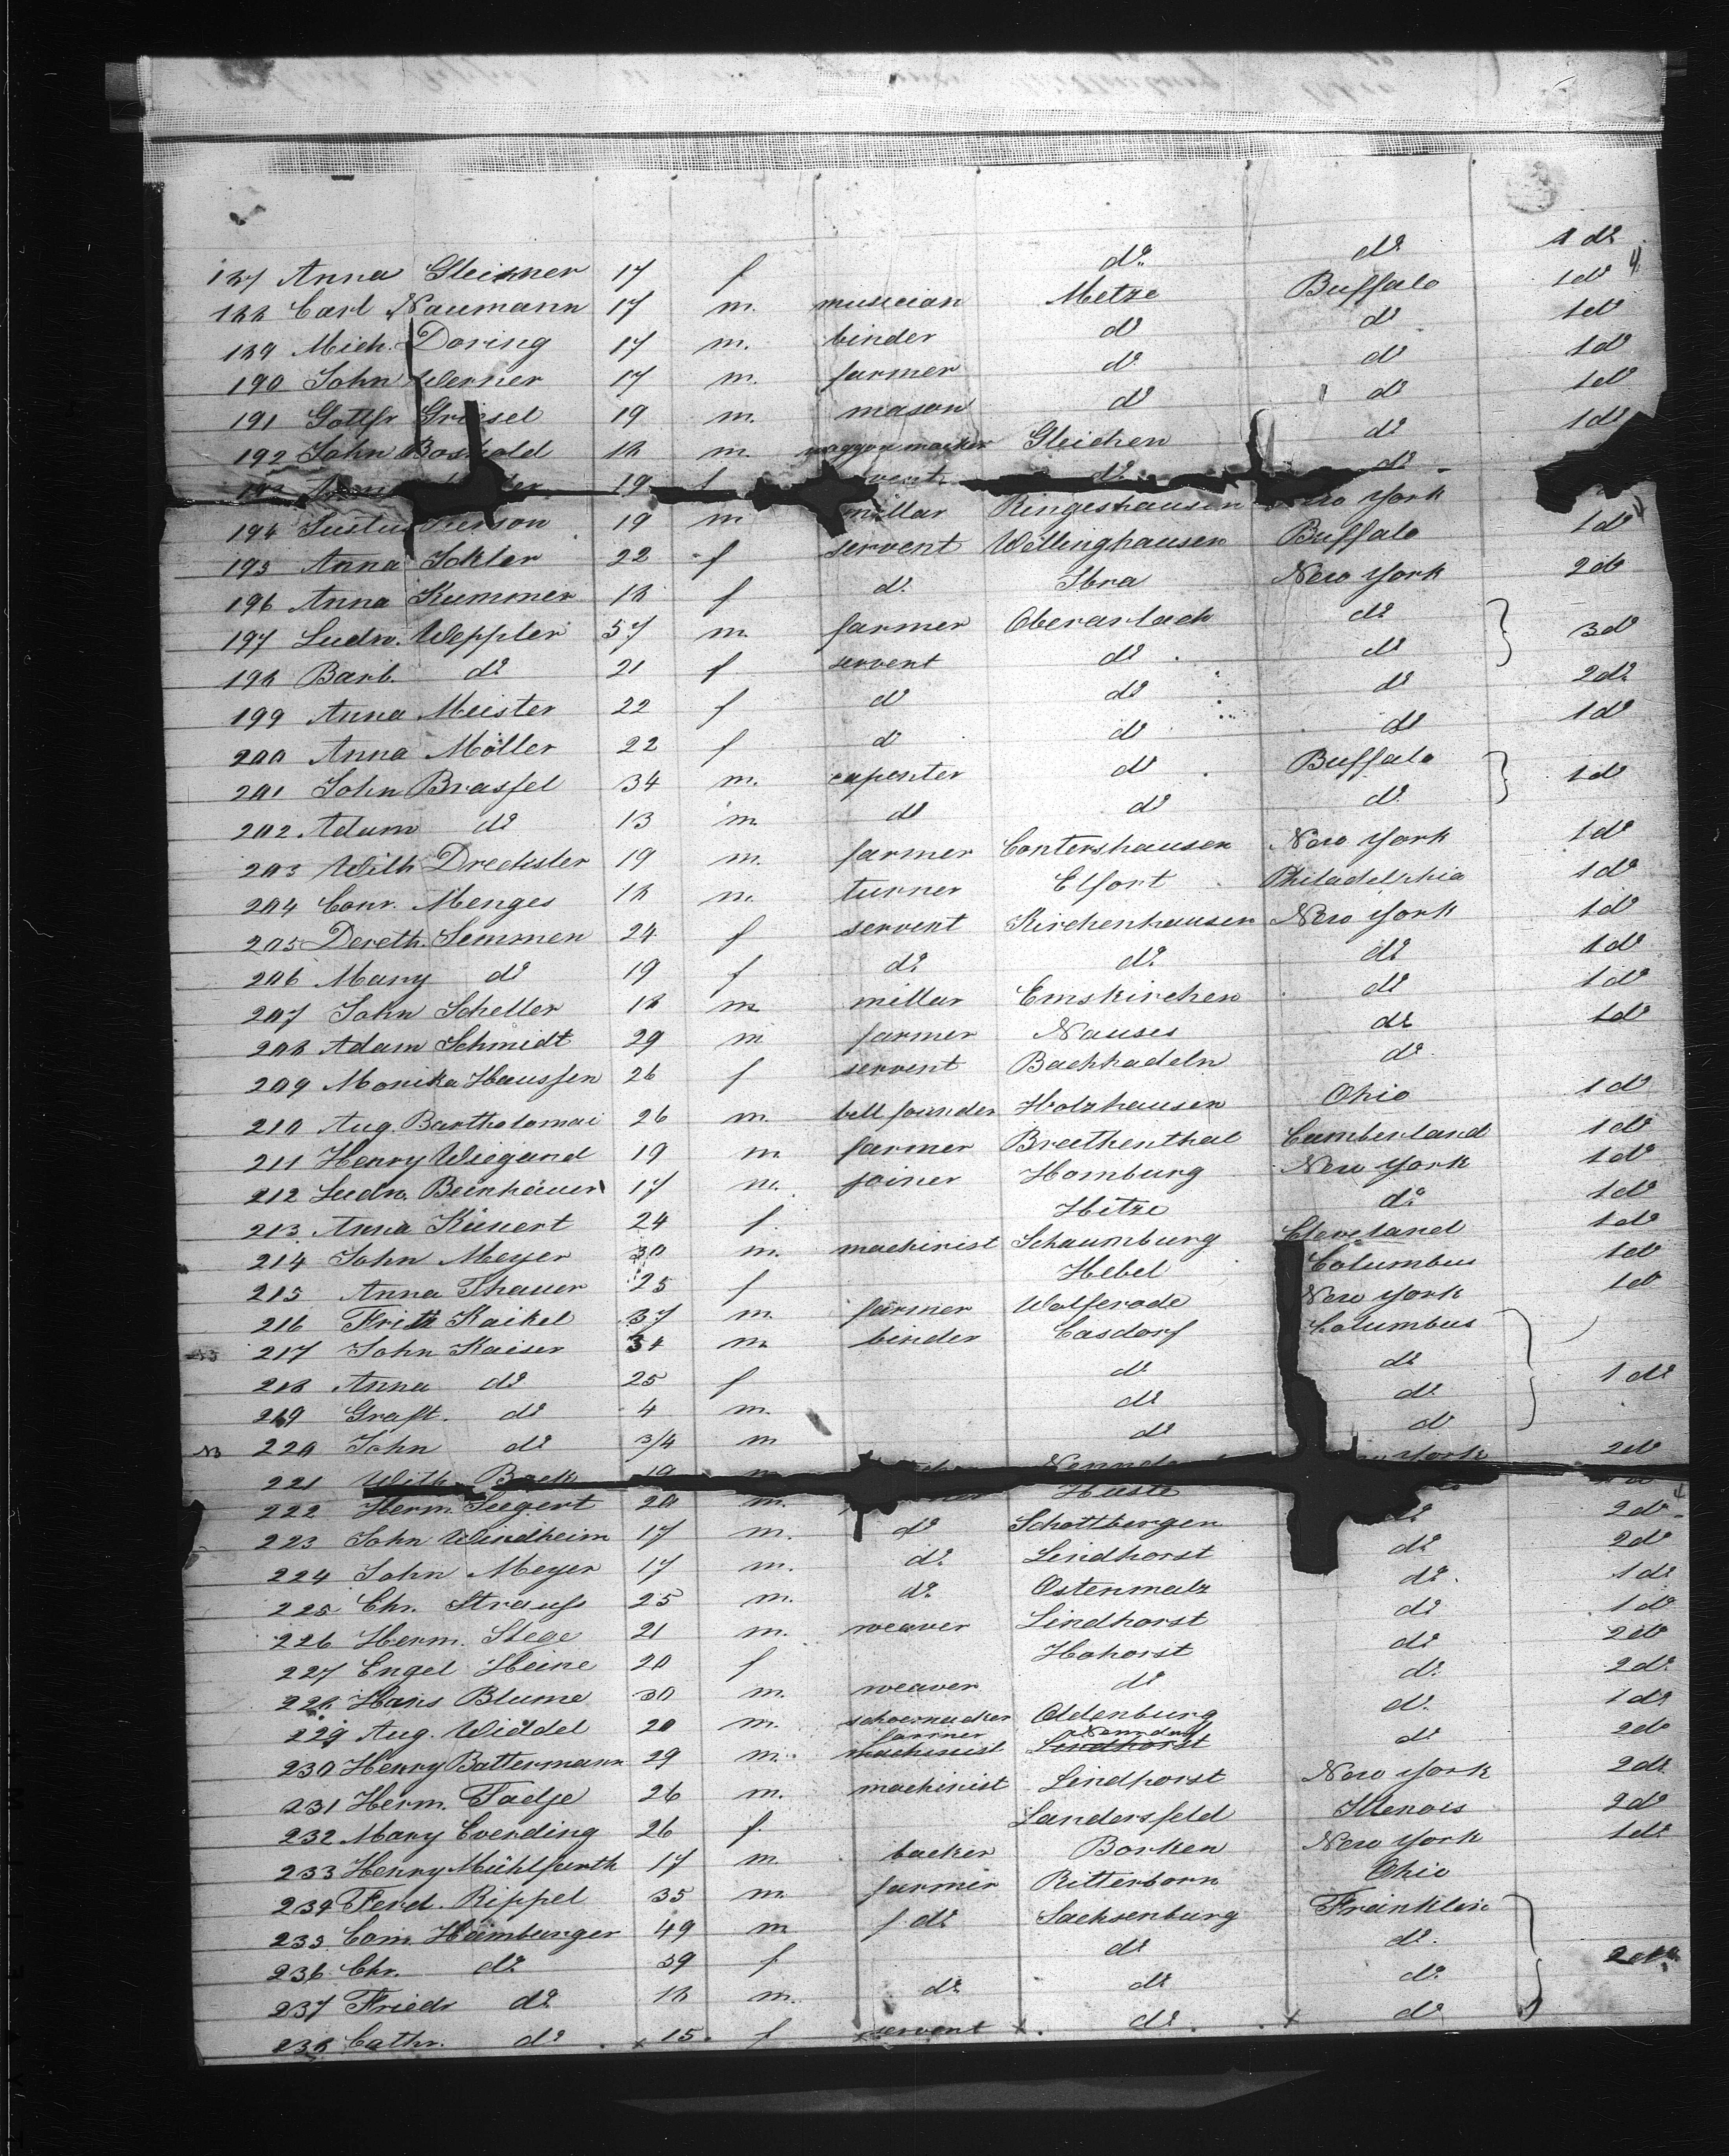 187 Anna Gleisner 17 f do do 1 do
188 Carl Naumann 17 m. musician Metze Buffalo 1 do 4
189 Mich. Doring 17 m. binder do do 1 do
190 John Werner 17 m. farmer do do 1 do
191 Gottfr Griesel 19 m. mason do do 1 do
192 John Boshold 18 m. waggonmacker Gleichen do 1 do
193 19 f do do
194 Justus 19 m millar Ringeshausen York
195 Anna Schler 22 f servent Wellinghausen Buffalo 1 do
196 Anna Kummer 18 f do Ibra New York 2 do
197 Ludw. Weppler 57 m. farmer Oberarlach do
198 Barb. do 21 f servent do do 3 do
199 Anna Meister 22 f do do do 2 do
200 Anna Möller 22 f do do do 1 do
201 John Brassel 34 m. capenter do Buffalo
202 Adam do 13 m do do do 1 do
203 Wilh Drechsler 19 m. farmer Contershausen New York 1 do
204 Conr. Menges 18 m. turner Elfort Philadelphia 1 do
205 Doreth. Semmen 24 f servent Kirchenhausen New York 1 do
206 Mary do 19 f do do do 1 do
207 John Scheller 18 m millar Emskirchen do 1 do
208 Adam Schmidt 29 m farmer Nauses do 1 do
209 Monika Haussen 26 f servent Bachhadeln do
210 Aug. Bartholomai 26 m. bell founder Holzhausen Ohio 1 do
211 Henry Wiegand 19 m farmer Breethenthal Cumberland 1 do
212 Ludw. Beinhäuer 17 m. joiner Homburg New York 1 do
213 Anna Künert 24 f. Hetze do 1 do
214 John Meyer 30 m. machinist Schaumburg Cleveland 1 do
215 Anna Thauer 25 f Hebel Columbus 1 do
216 Fritz Kaikel 37 m. farmer Wolferode New York 1 do
217 John Kaiser 34 m binder Casdorf Columbus
218 Anna do 25 f do do
219 Graft. do 4 m. do do 1 do
220 John do 3/4 m do do
221 Wilh. Bock 19 m York 2 do
222 Herm. Seegert 20 m. Huste
223 John Windheim 17 m. do Schottbergen do 2 do
224 John Meyer 17 m. do Lindhorst do 2 do
225 Chr. Strauss 25 m. do Ostenmalz do 1 do
226 Herm. Stege 21 m. weaver Lindhorst do 1 do
227 Engel Heine 20 f Hohorst do 2 do
228 Hans Blume 30 m. weaver do do 2 do
229 Aug. Widdel 20 m. schoemacker Oldenburg do 1 do
farmer
230 Henry Battermann 29 m. machinist Lindhorst do 2 do
231 Herm. Tadje 26 m. machinist Lindhorst New York 2 do
232 Mary Everding 26 f. Landersfeld Illenois 2 do
233 Henry Mühlfurth 17 m backer Borken New York 1 do
234 Ferd. Rippel 35 m farmer Ritterborn Ohio
235 Conr. Hamburger 49 m f. do Sachsenburg Franklin
236 Chr. do 39 f do do
237 Friedr do 18 m. do do do
238 Cathr. do 15 f servent do do